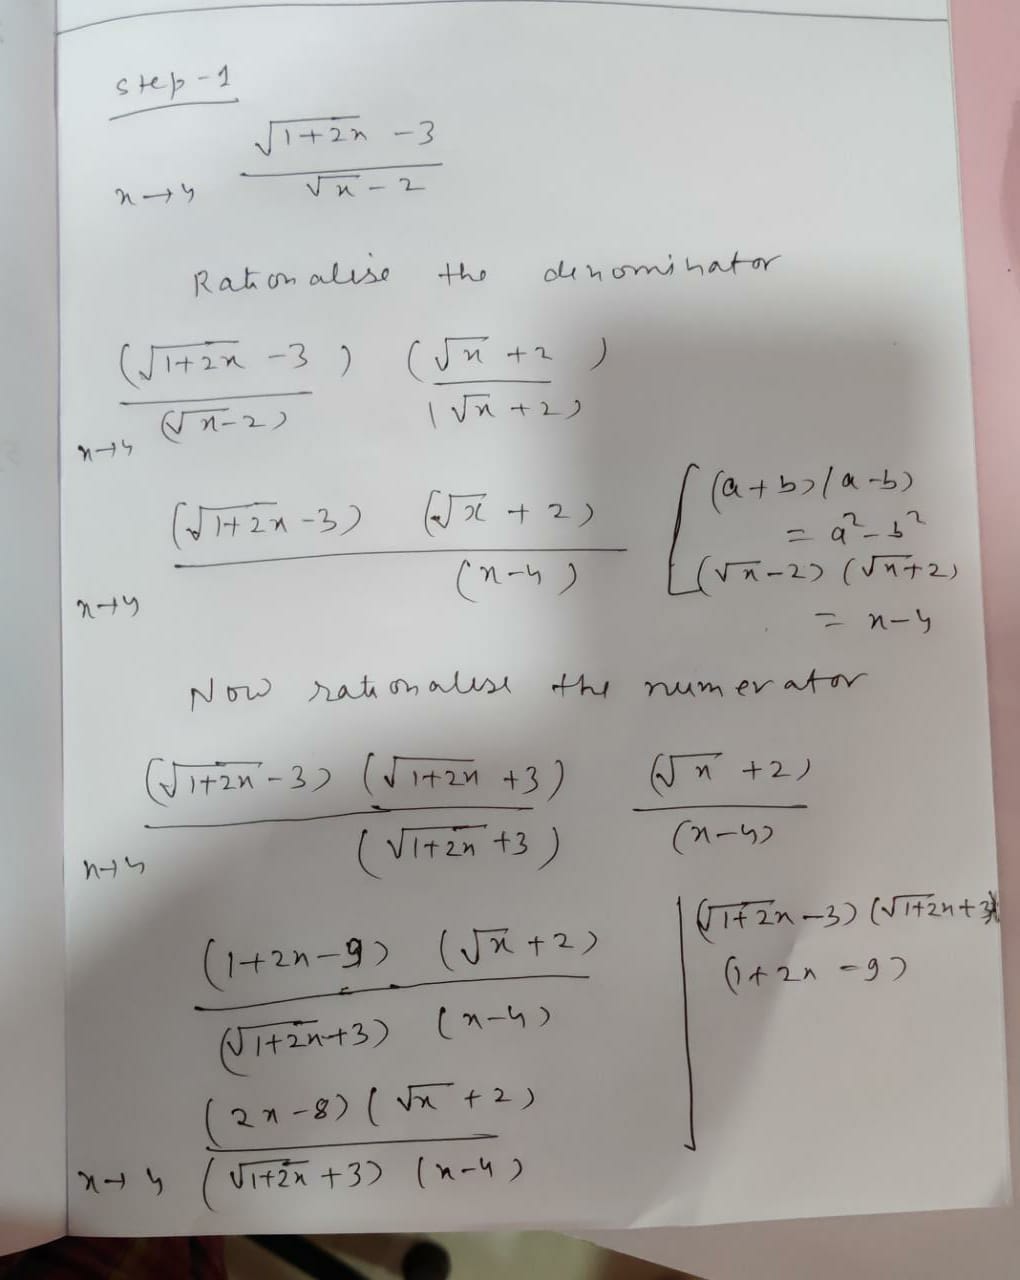 step-1
√1+2x -3
x→4 √x - 2
Rationalise the denominator
(√1+2x -3) (√x +2)
(√x-2) (√x +2)
x→4
(√1+2x -3) (√x + 2)
(x-4)
x→4
[(a+b)(a-b)
= a²-b²
(√x-2) (√x+2)
= x-4
Now rationalise the numerator
(√1+2x -3) (√1+2x +3) (√x +2)
(√1+2x +3) (x-4)
x→4
(1+2x-9) (√x +2)
(√1+2x+3) (x-4)
(√1+2x-3) (√1+2x+3)
(1+2x -9)
(2x-8) (√x +2)
x→4 (√1+2x +3) (x-4)